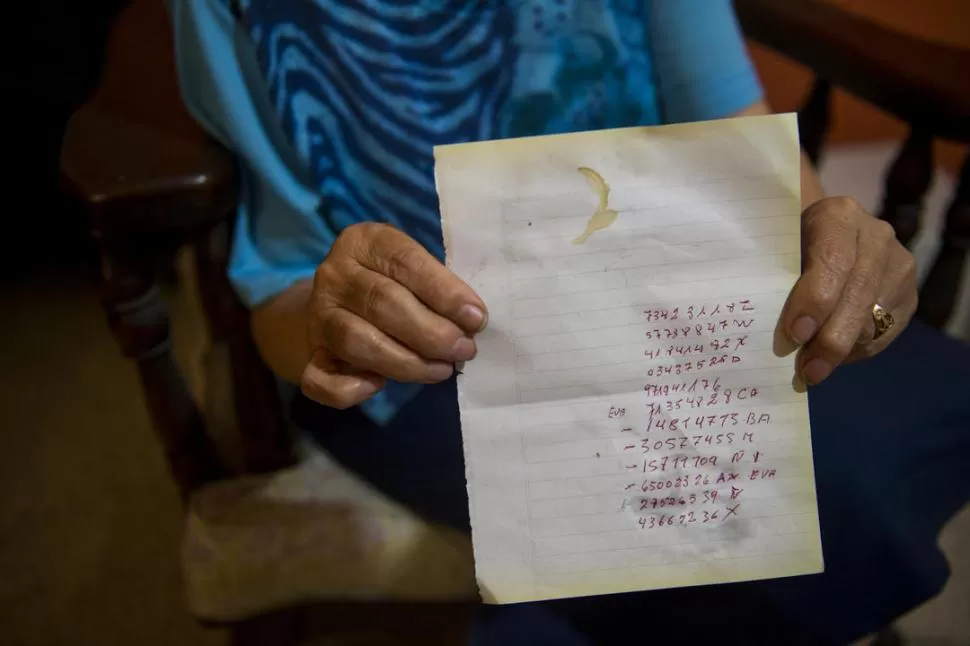 7342 3118Z
57738847W
41841492X
03437525D
971941176
EVA 71354828CA
- 14814773 BA
- 30577455 M
- 15711709 Ñ
- 65002326 AX EVA
27526539
43665236 X